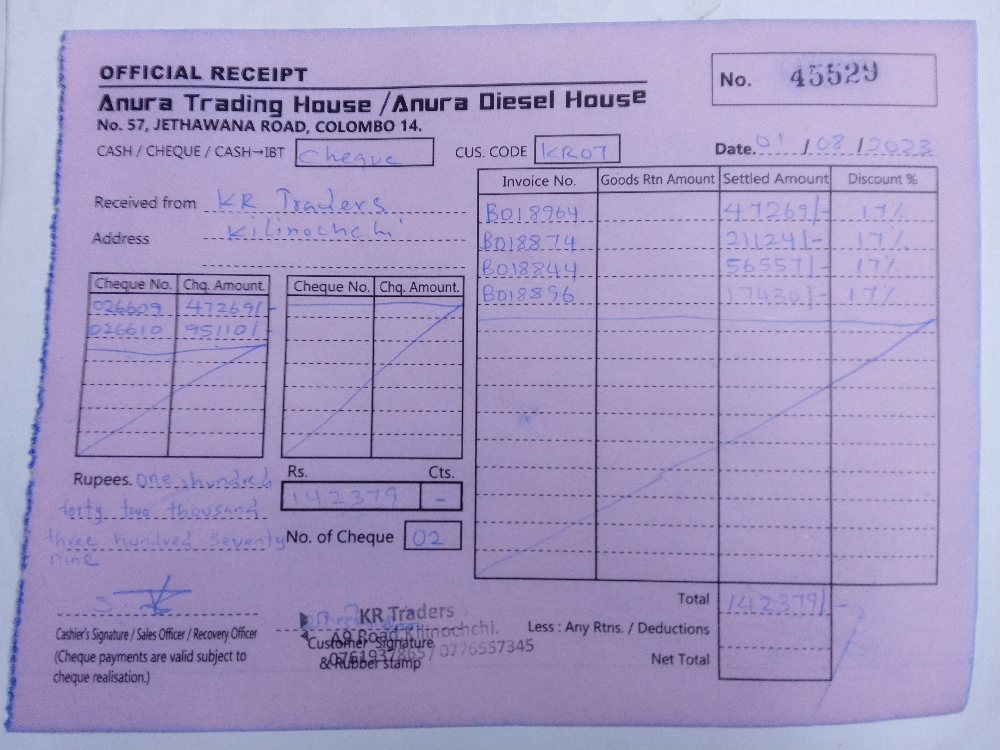 OFFICIAL RECEIPT
No. 45529
Anura Trading House / Anura Diesel House
No. 57, JETHAWANA ROAD, COLOMBO 14.
CASH / CHEQUE / CASH→IBT Cheque CUS. CODE KR07 Date. 01 / 08 / 2023
Received from KR Traders
Address Kilinochchi
Invoice No. Goods Rtn Amount Settled Amount Discount %
B018964 47269/- 17%
B018874 21124/- 17%
B018844 56557/- 17%
B018896 17430/- 17%
Cheque No. Chq. Amount. Cheque No. Chq. Amount.
026609 47269/-
026610 95110/-
Rupees. one hundred
forty two thousand
three hundred seventy
nine
Rs. Cts.
142379 -
No. of Cheque 02
Total 142379/-
Less : Any Rtns. / Deductions
Net Total
Cashier's Signature / Sales Officer / Recovery Officer
(Cheque payments are valid subject to
cheque realisation.)
KR Traders
A9 Road, Kilinochchi.
0761937865 / 0776557345
Customer Signature
& Rubber stamp